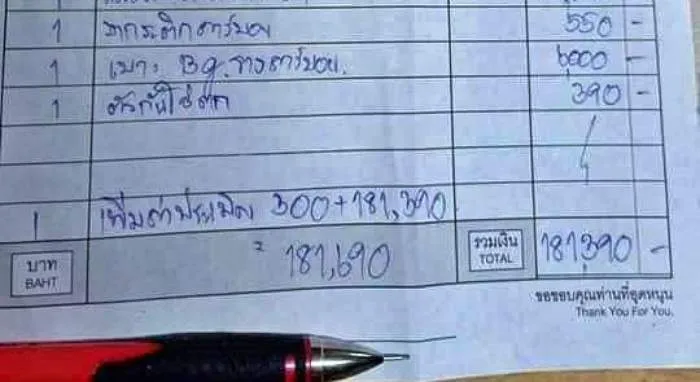 1 ขากระติกคาร์บอน 550 -
1 เบาะ Bg. รางคาร์บอน. 6,000 -
1 ตัวกันโซ่ตก 390 -
1 เพิ่มค่าประเมิน 300 + 181,390
บาท
BAHT
= 181,690
รวมเงิน
TOTAL
181,390 -
ขอขอบคุณท่านที่อุดหนุน
Thank You For You.